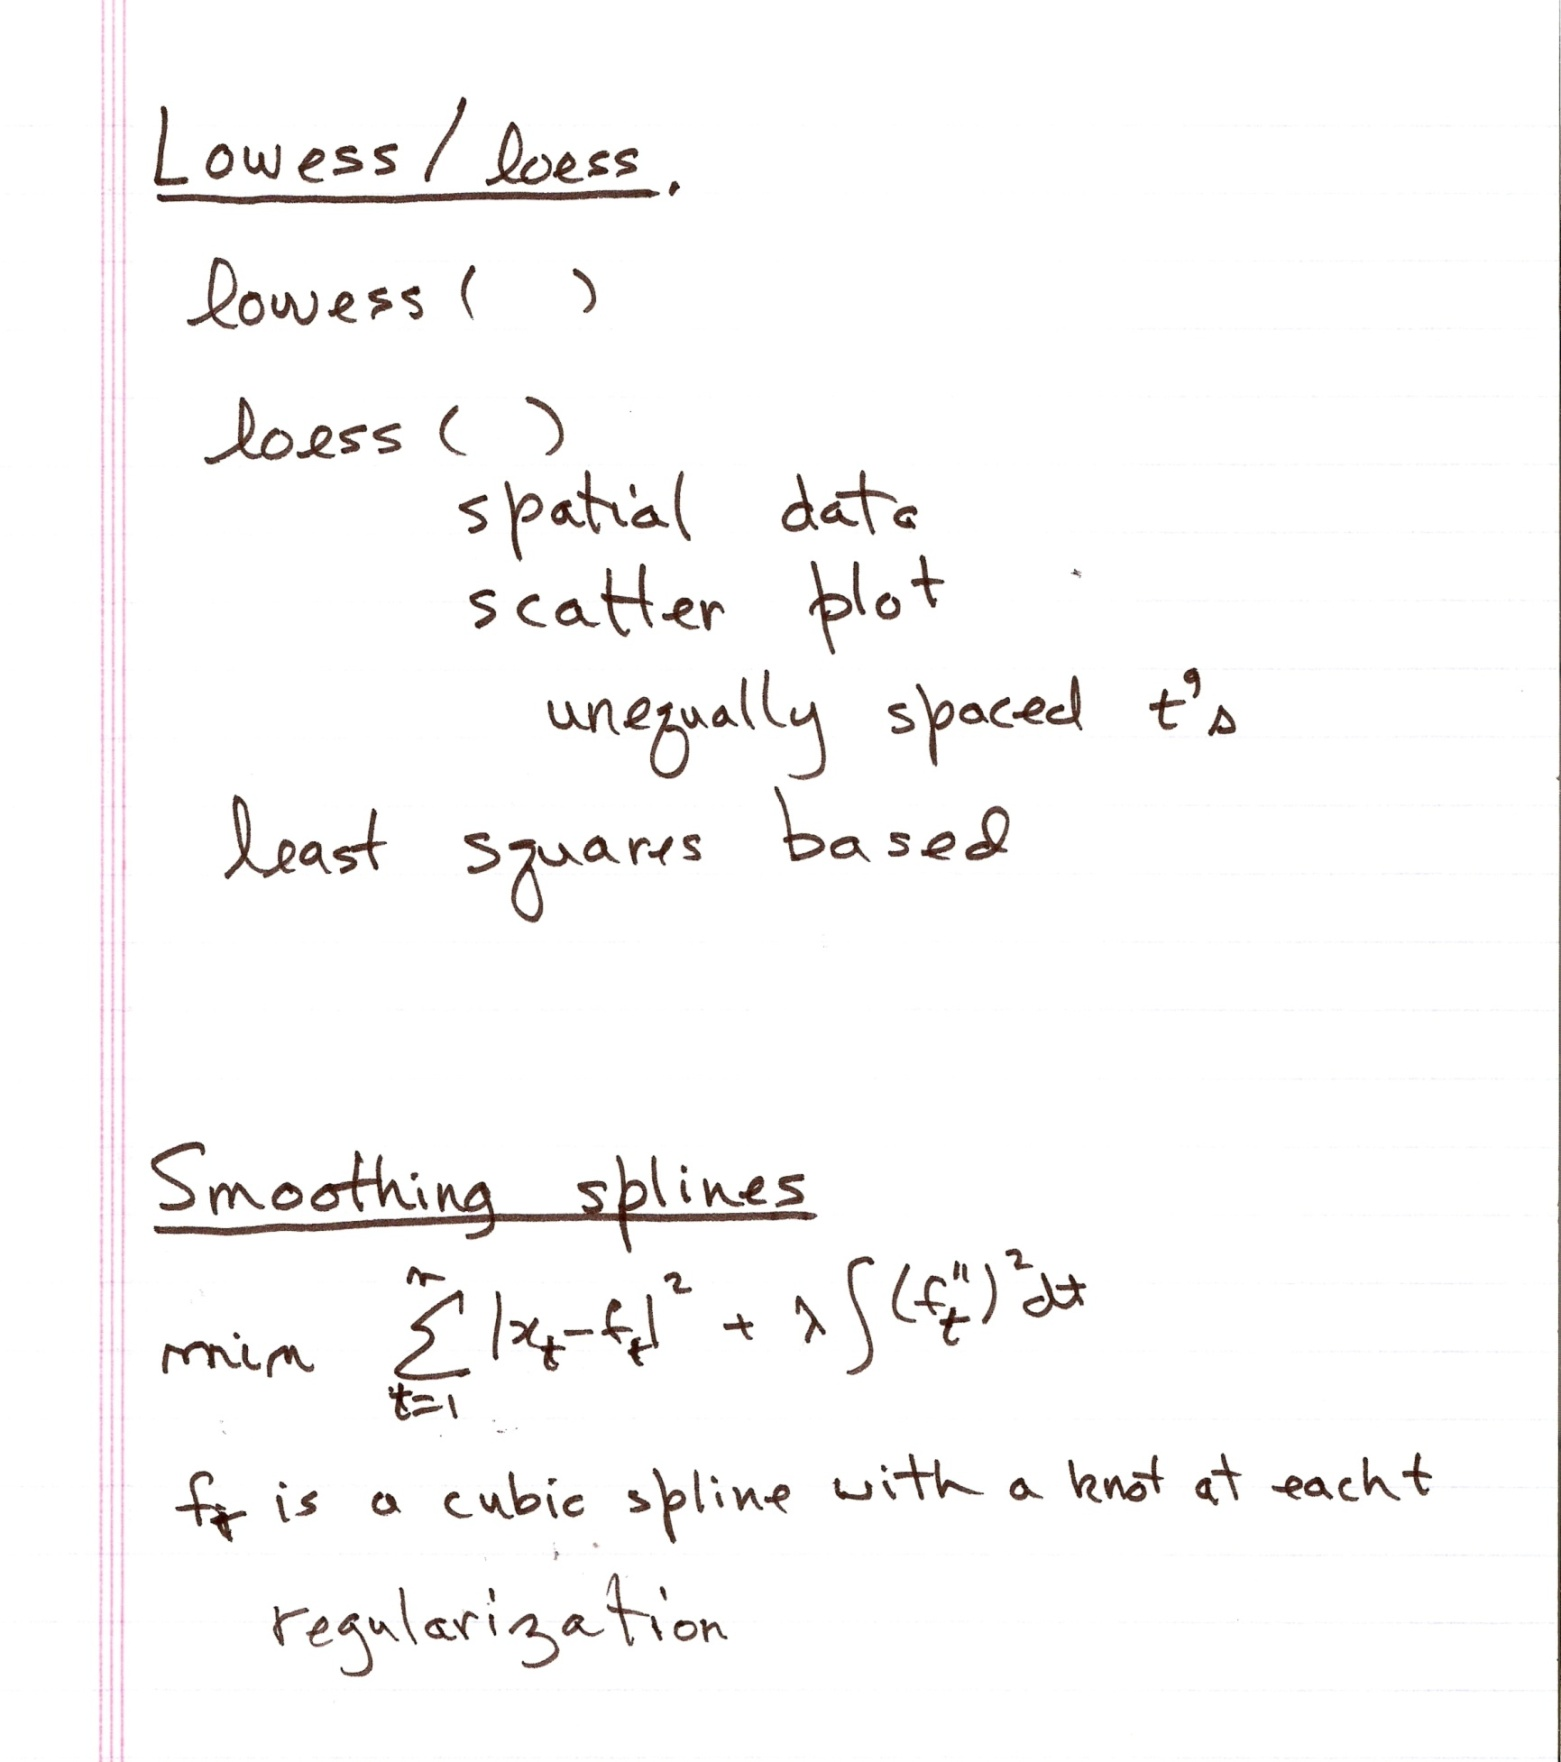 Lowess / loess.
lowess ( )
loess ( )
spatial data
scatter plot
unequally spaced t's
least squares based
Smoothing splines
min \sum_{t=1}^{n} |x_t - f_t|^2 + λ ∫ (f_t'')^2 dt
f_t is a cubic spline with a knot at each t
regularization